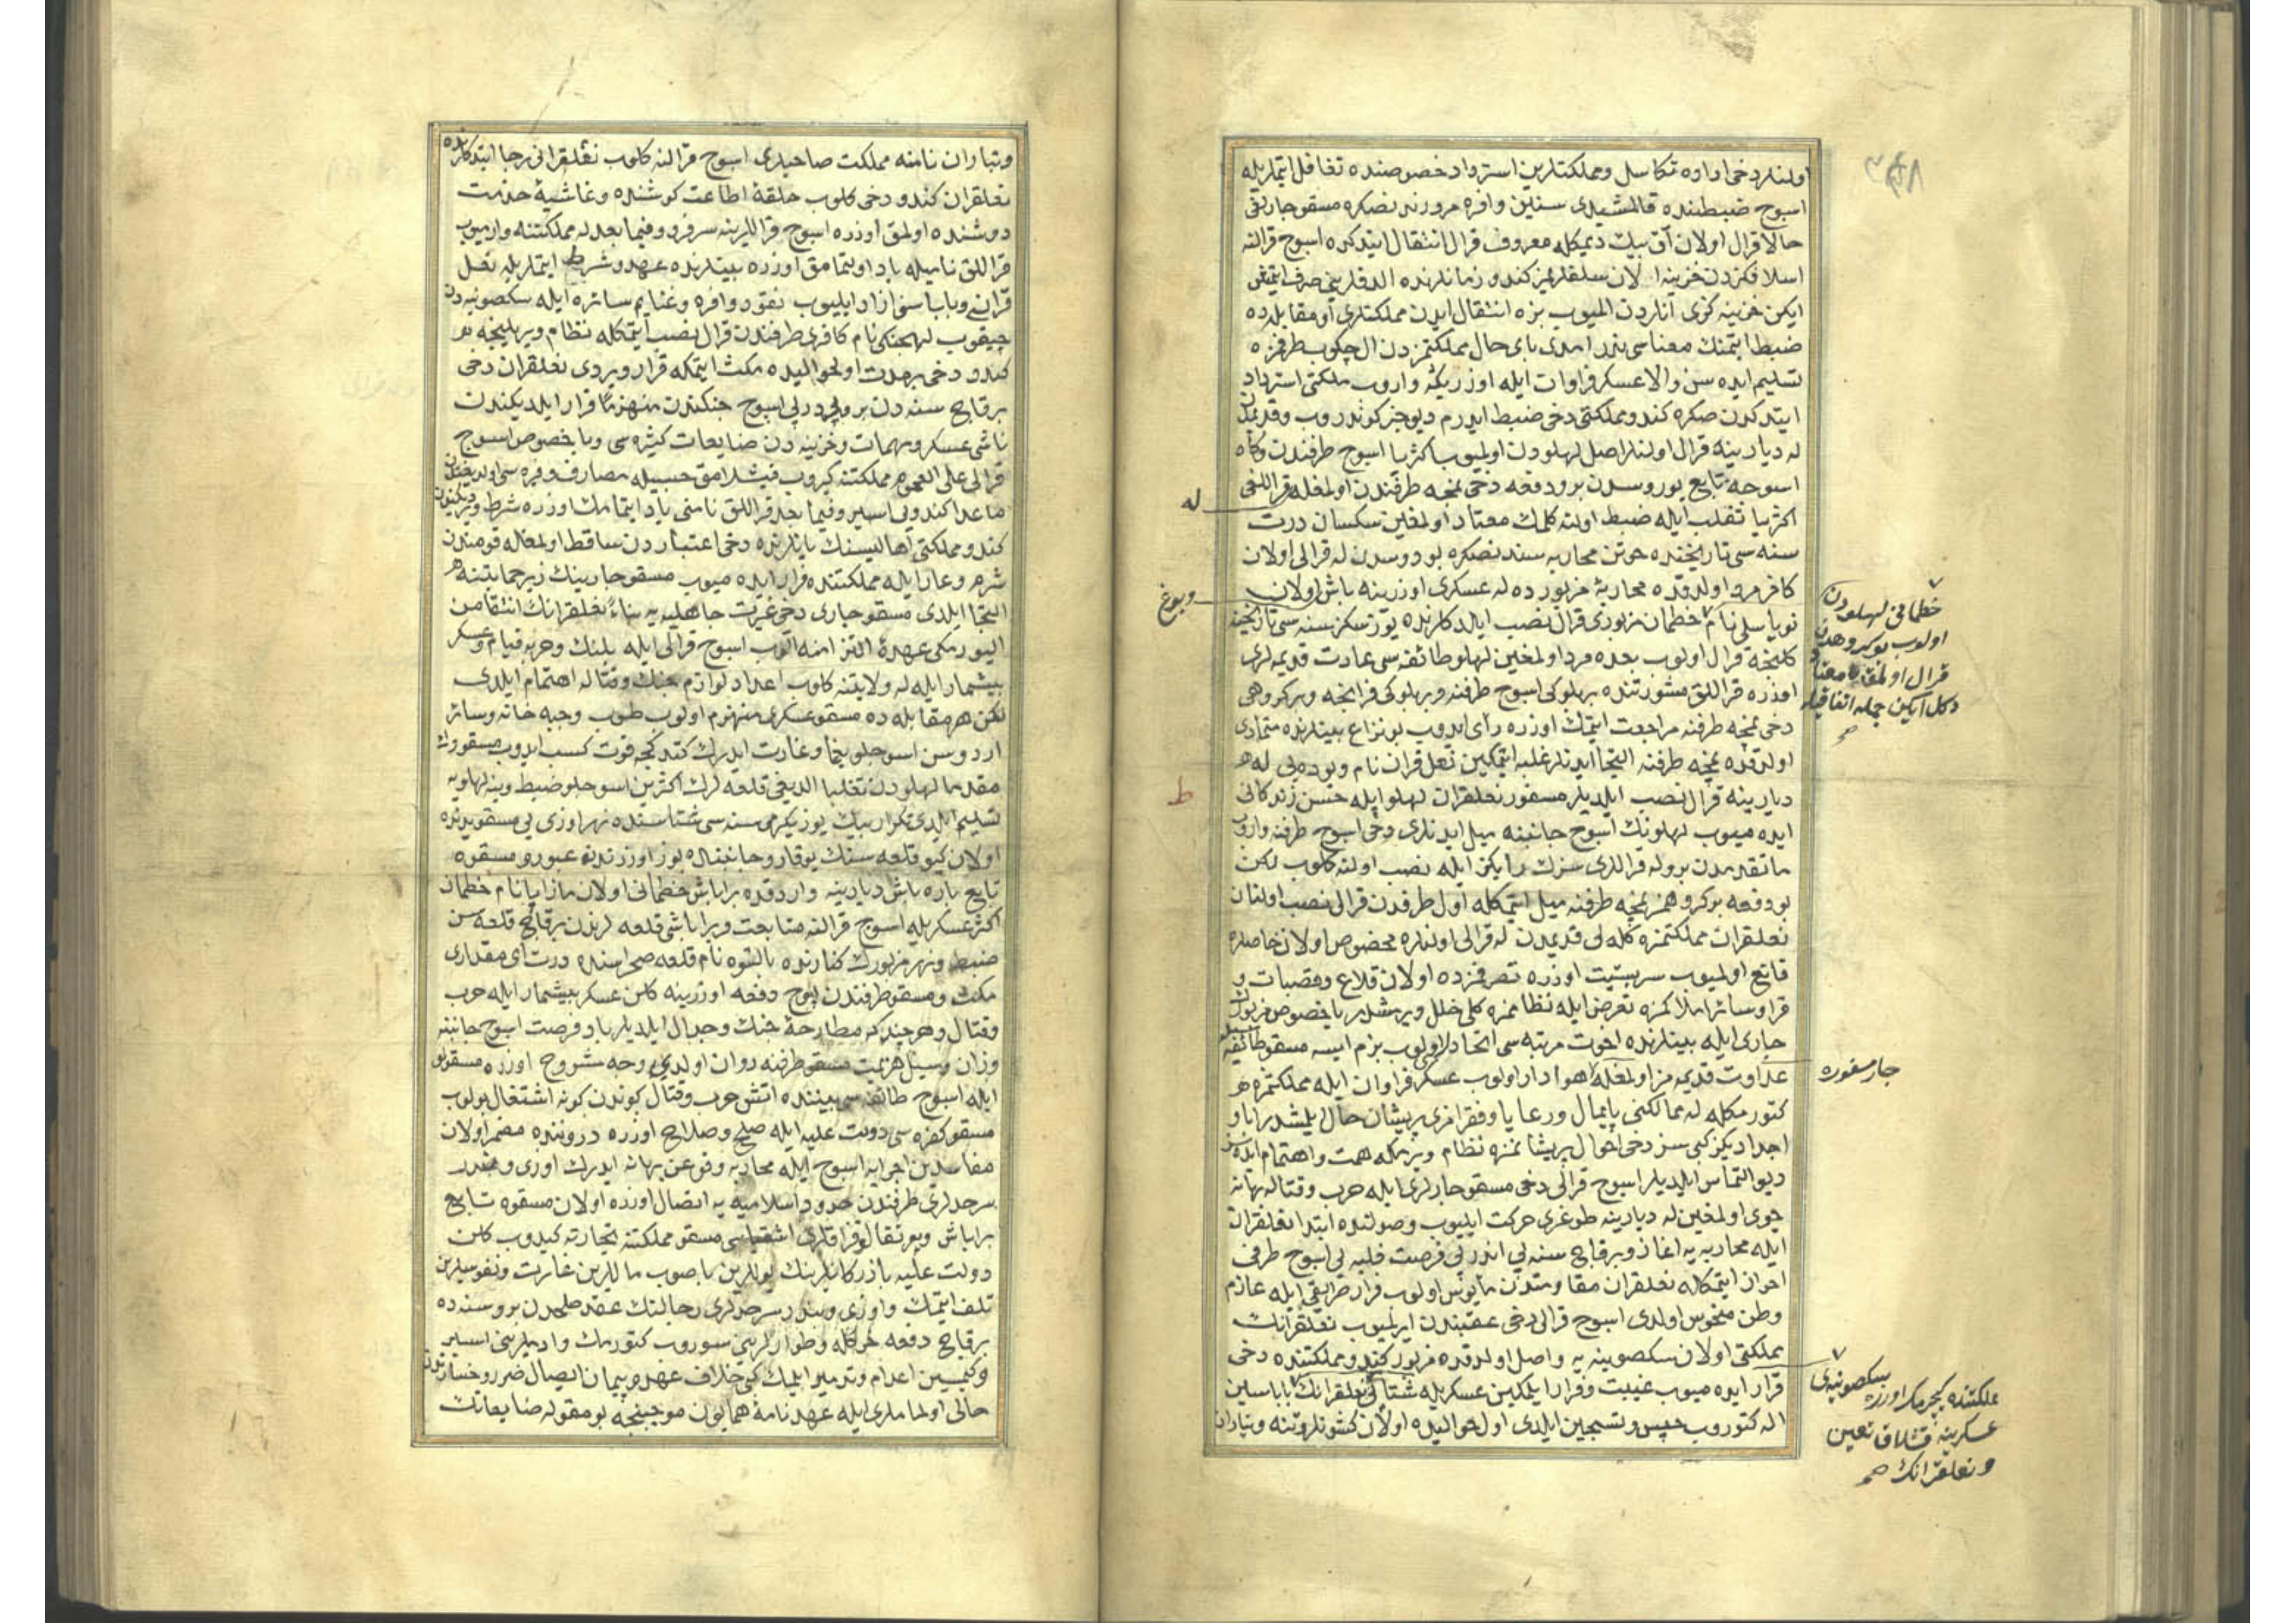 اولنلر دخی اراده تكاسل ومملكتلرین استرداد خصوصنده تغافل ایتملریله
اسوج ضبطنده قالمشیدی سنین وافره مرورندنصكره مسقو جاریقی
حالا قرال اولان آق بیك دیمكله معروف قرال انتقال ایتدكده اسوج قرالنه
اسلافكزدن خزینه الان سلفلریمز كندو زمانلرنده الدقلرینی صرف ایتمش
ایكن خزینه كزی آنلردن المیوب بزه انتقال ایدن مملكتلری آو مقابله ده
ضبط ایتمنك معناسی ندر امدی بای حال مملكتمزدن ال چكوب طرفمزه
تسلیم ایده سن والا عسكر فراوان ایله اوزریكه واروب ملكتی استرداد
ایتدكدن صكره كندو مملكتی دخی ضبط ایدرم دیو خبر كوندروب وقدیمدن
له دیارینه قرال اولنلر اصل لهلودن اولمیوب اكثریا اسوج طرفندن وكاه
اسوجه تابع بوروسدن بر ودفعه دخی نمچه طرفندن اولمغله قراللغی
اكثریا تقلب ایله ضبط اولنه كلمك معتاد اولمغین سكسان درت
سنه سی تاریخنده خوتن محاربه سندنصكره بودوسدن له قرالی اولان
كافر مرد اولدقده محاربهٔ مزبورده له عسكری اوزرینه باش اولان
نویاسلی نام خطمان مزبوری قرال نصب ایلدكلرنده یوز سكز سنه سی تاریخنه
كلنجه قرال اولوب بعده مرد اولمغین لهلو طائفه سی عادت قدیمه لری
اوزره قراللق مشورتنده بر بلوكی اسوج طرفنه و بر بلوكی فرانچه و بر كروهی
دخی نمچه طرفنه مراجعت ایتمك اوزره رای ایدوب بو نزاع بینلرنده متمادی
اولدقده نمچه طرفنه التجا ایدنلر غلبه ایتمكین نعل قران نام
دیارینه قرال نصب ایلدیلر مسفور نعلقران لهلو ایله حسن زندكانی
ایده میوب لهلونك اسوج جانبنه میل ایدنلری دخی اسوج طرفنه واروب
ماتقدمدن برو له قراللری سزك رایكز ایله نصب اولنه كلوب لكن
بو دفعه بر كروهمز نمچه طرفنه میل ایتمكله اول طرفدن قرالی نصب اولنان
نعلقران مملكتمزه كله لی قدیمدن له قرالی اولنلره مخصوص اولان خاصلره
قانع اولمیوب سربستیت اوزره تصرفمزده اولان قلاع وقصبات و
قرا وسائر املاكمزه تعرض ایله نظاممزه كلی خلل ویرمشدر باخصوص مزبورك
جاری ایله بینلرنده اخوت مرتبه سی اتحادلری اولوب بزم ایسه مسقو طائفه سیله
عداوت قدیمه مز اولمغله اهوادار اولوب عسكر فراوان ایله مملكتمزه
كتورمكله له ممالكنی پایمال ورعایا وفقرامزی پریشان حال ایلمشدر ابا و
اجدادیكز كبی سز دخی احوال پریشانمزه نظام ویرمكه همت واهتمام ایده سز
دیو التماس ایلدیلر اسوج قرالی دخی مسقو جارلری ایله حرب وقتاله بهانه
جوی اولمغین له دیارینه طوغری حركت ایلیوب وصولنده ابتدا نعلقران
ایله محاربه یه اغاز و بر قاچ سنه لی فرصت غلبه یی اسوج طرفی
احراز ایتمكله نعلقران مقاومتدن مأیوس اولوب فرار طریقی ایله عازم
وطن منحوس اولدی اسوج قرالی دخی عقبندن ایرلمیوب نعلقرانك
مملكتی اولان سكصونیه یه واصل اولدقده مزبور كندو مملكتنده دخی
قرار ایده میوب غیبت وفرار ایلمكین عسكریله شتا نعلقرانك باباسین
اله كتوروب حبس وتسجین ایلدی اول حوالیده اولان
له
ویوغ
ط
خطمانی لهلودن
اولوب بو كروهدن
قرال اولمق معتاد
دكل ایكن جمله اتفاقیله
صح
جار مسفوره
سكصونیه ی
مملكتنده كچرمك اوزره
عسكرینه قشلاق تعیین
و نعلقرانك صح
وتباران نامنه مملكت صاحبلری اسوج قرالنه كلوب نعلقرانی رجا ایتدكلرنده
نعلقران كندو دخی كلوب حلقهٔ اطاعت كوشنده وغاشیهٔ خدمت
دوشنده اولمق اوزره اسوج قراللرینه سرفرو وفیما بعد له مملكتنه وارمیوب
قراللق نامیله یاد اولنمامق اوزره بینلرنده عهد وشرط ایتملریله نعل
قرانی وباباسنی ازاد ایلیوب نقود وافره وغنایم سائره ایله سكصونیه دن
چیقوب لهجنكی نام كافری طرفندن قرال نصب ایتمكله نظام ویریلنجه
كندو دخی بر مدت اولحوالیده مكث ایتمكه قرار ویردی نعلقران دخی
بر قاچ سنه دن برو پی درپی اسوج جنكندن منهزما فرار ایلدیكندن
ناشی عسكر ومهمات وخزینه دن ضایعات كثیره سی وباخصوص اسوج
قرالی علی العموم مملكتنه كیروب قیشلامق حسبیله مصارف وفیره سی اولدیغندن
ماعدا كندویی اسیر وفیما بعد قراللق نامنی یاد ایتمامك اوزره شرط ویردیكندن
كندو مملكتی اهالیسنك یانلرنده دخی اعتباردن ساقط اولمغله قومندن
شرم وعار ایله مملكتنده قرار ایده میوب مسقو جارینك زیر حمایتنه
التجا ایلدی مسقو جاری دخی غیرت جاهلیه یه بناءً نعلقرانك انتقامن
الیورمكی عهدهٔ التزامنه الوب اسوج قرالی ایله جنك وحربه قیام وعسكر
بیشمار ایله له ولایتنه كلوب اعداد لوازم جنك وقتاله اهتمام ایلدی
لكن هر مقابله ده مسقو عسكری منهزم اولوب طوب وجبه خانه وسائر
اردوسن اسوجلو یغما وغارت ایدرك كتدكجه قوت كسب ایدوب مسقونك
مقدما لهلودن تغلبا الدیغی قلعه لرك اكثرین اسوجلو ضبط وینه لهلویه
تسلیم ایلدی تكرار بیك یوز یكرمی سنه سی شتاسنده نهر اوزی یی مسقو یدنده
اولان كیو قلعه سنك یوقارو جانبنده بوز اوزرندن عبور و مسقوه
تابع باره باش دیارینه واردقده براباش خطمانی اولان مازاپا نام خطمان
اكثر عسكریله اسوج قرالنه متابعت و براباشی قلعه لرندن بر قاچ قلعه سن
ضبط ونهر مزبورك كنارنده بالتوه نام قلعه صحراسنده درت ای مقداری
مكث ومسقو طرفندن اوچ دفعه اوزرینه كلن عسكر بیشمار ایله حرب
وقتال وهر چند كه مطارحهٔ جنك وجدال ایلدیلر باد فرصت اسوج جانبنه
وزان وسیل هزیمت مسقو طرفنه روان اولدی وجه مشروح اوزره مسقولو
ایله اسوج طائفه سی بیننده اتش حرب وقتال كوندن كونه اشتعال بولوب
مسقو كفره سی دولت علیه ایله صلح وصلاح اوزره دروننده مضمر اولان
مفاسدین اجرایه اسوج ایله محاربه وقوعن بهانه ایدرك اوزی وبندر
سرحدلری طرفندن حدود اسلامیه یه اتصال اوزره اولان مسقوه تابع
براباش و اشقیاسی مسقو مملكتنه تجارته كیدوب كلن
دولت علیه بازركانلرینك یوللرین باصوب ماللرین غارت ونفوسلرین
تلف ایتمك واوزی وبندر سرحدلری رجالنك عقد صلحدن برو سنه ده
بر قاچ دفعه خركله وطوارلرینی سوروب كتورمك وادملرینی اسیر
وكیمیسین اعدام وتدمیر ایلمك كبی خلاف عهد وپیمان ایصال ضرر وخساردن
خالی اولماملری ایله عهدنامهٔ همایون موجبنجه بو مقوله ضایعاتك